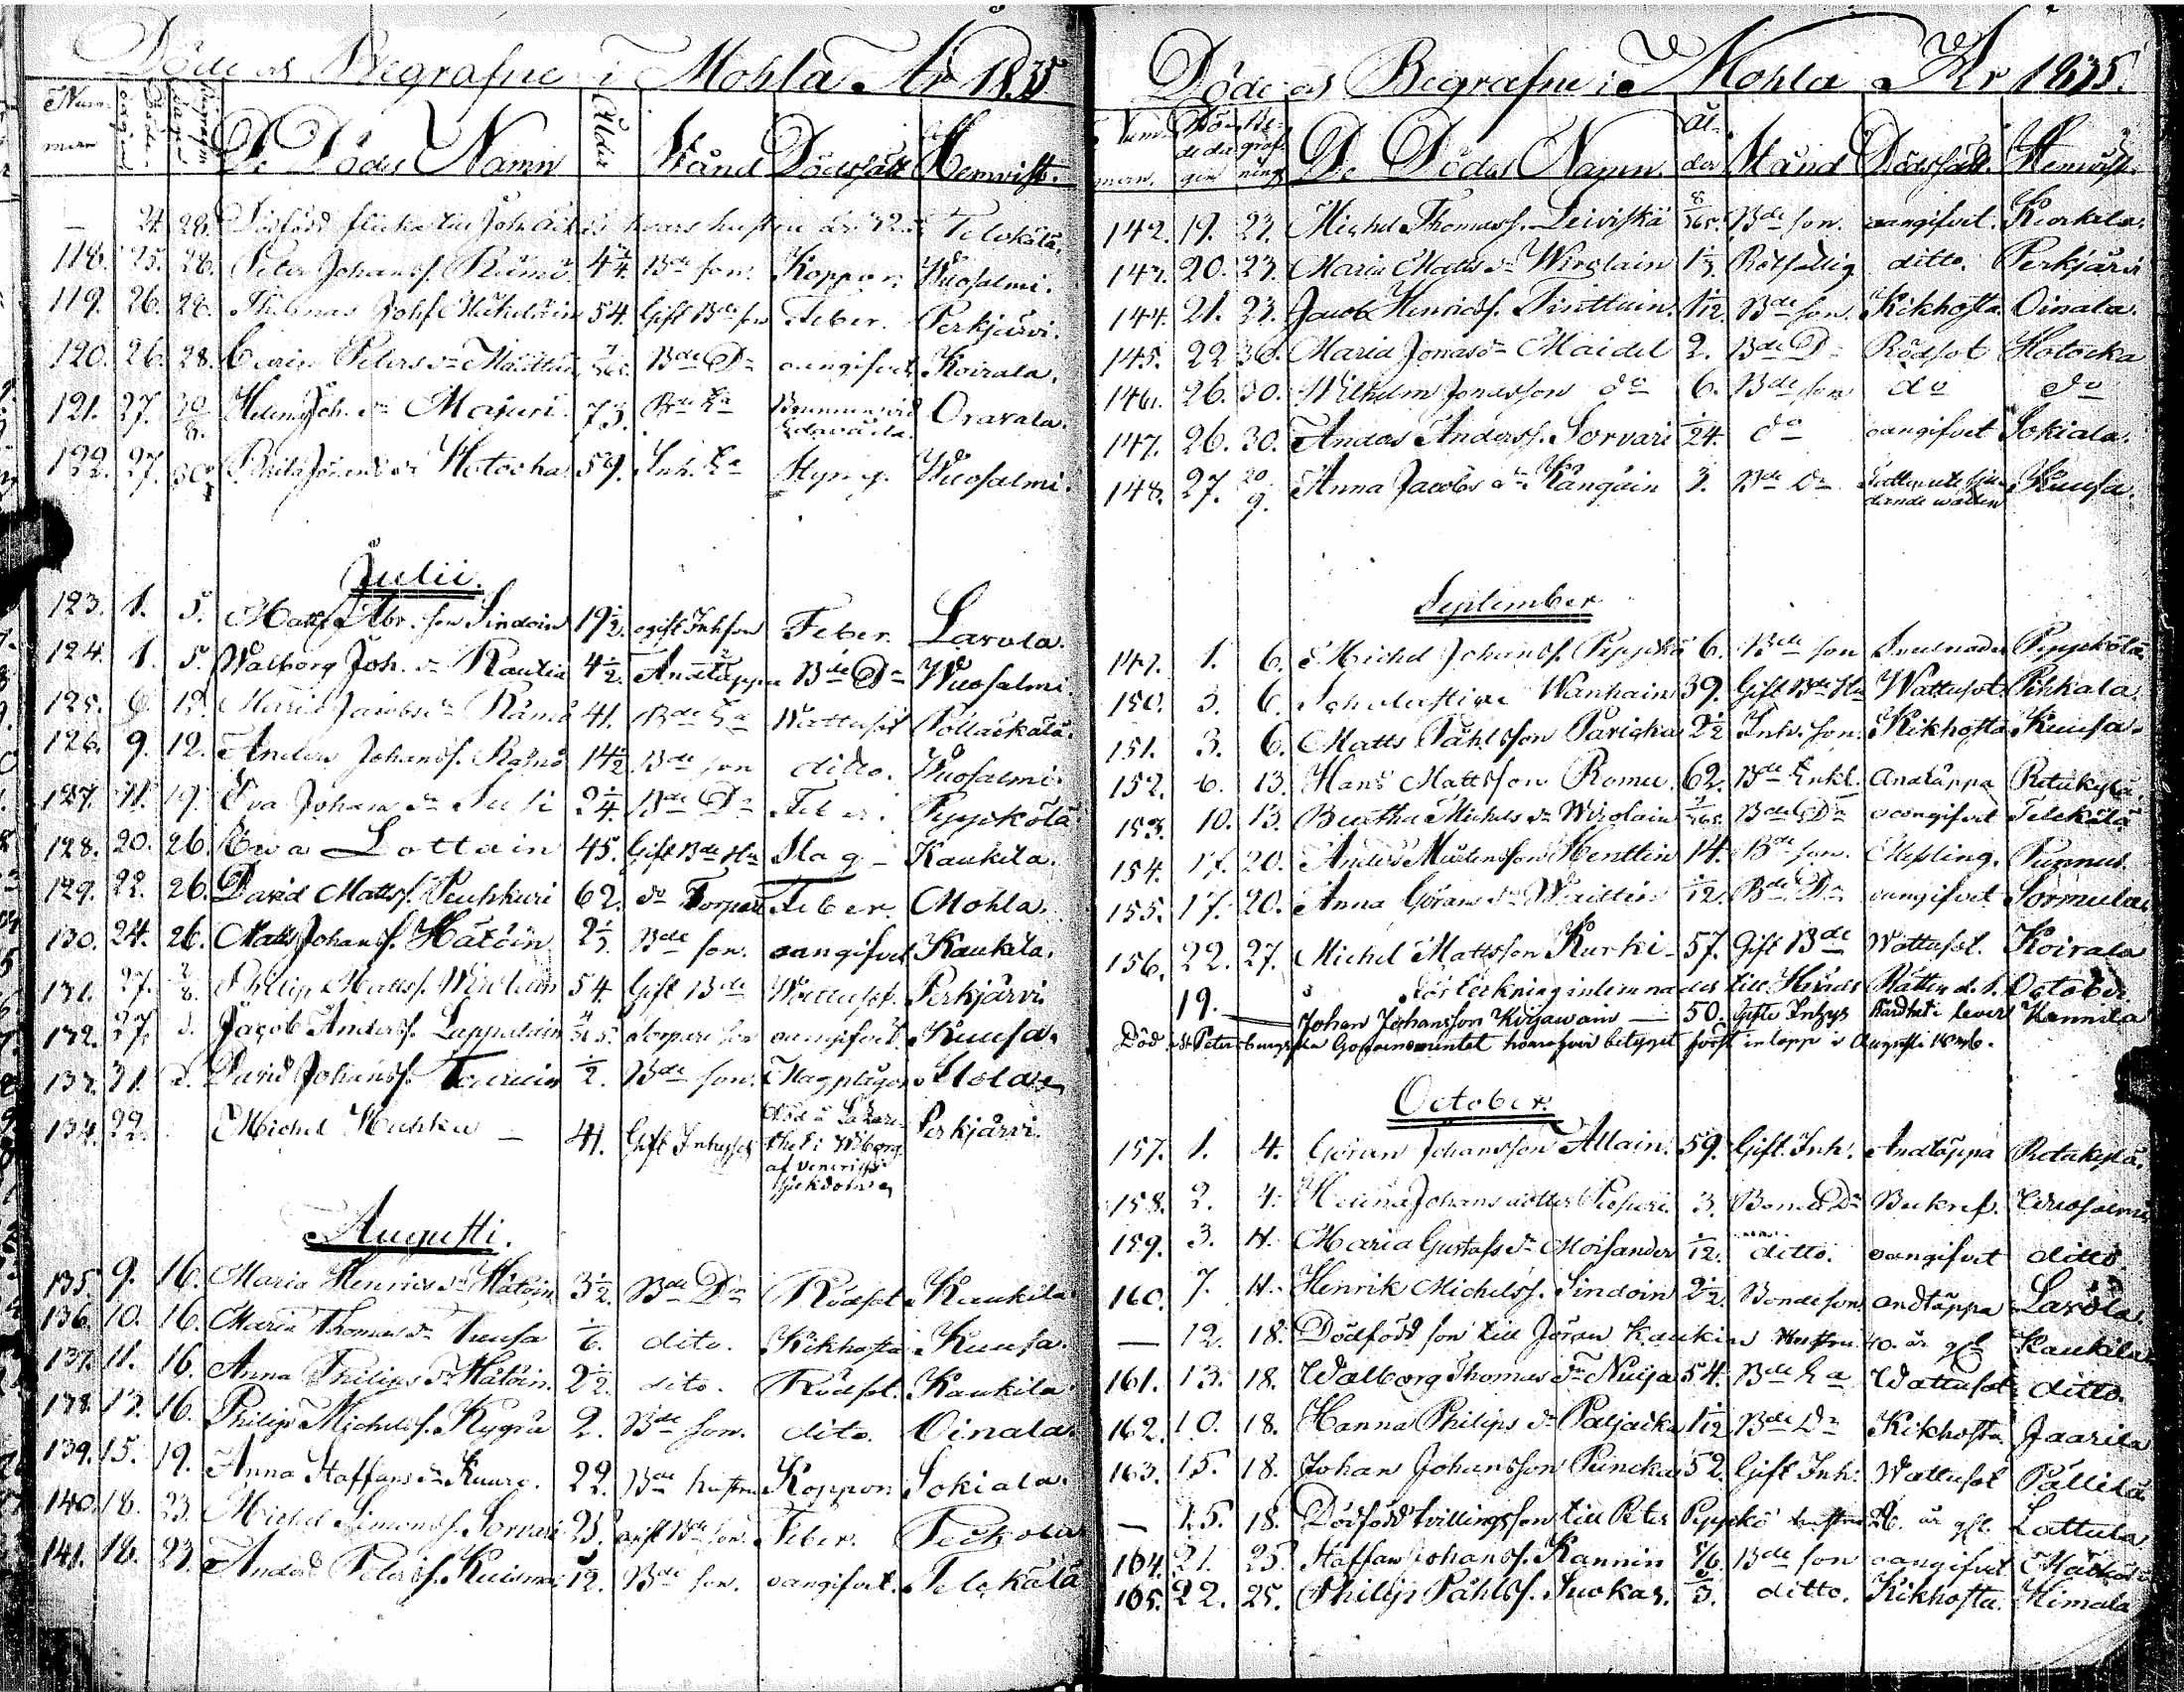 Döde och Begrafne i Mohla År 1835
Num-
mern Dödsdagen Begrafn.dagen De Dödas Namn Ålder Stånd Dödssätt Hemvist.
— 24. 28. Dödfödd flicka till Joh. hustru är 32. Telckälä.
118. 25. 28. Peter Johansf. Rämö 4 1/4. Bde son. Koppor. Wuosalmi.
119. 26. 28. Thomas Johsf. 54. Gift Bde son Feber. Perkjärvi.
120. 26. 28. Carin Peters dr 7/365. Bde Dr oangifvet. Koirala.
121. 27. 30/8. Helena Joh. dr Majuri. 73. Bde Ea Oravala.
122. 27. 30. Brita dr Hotocka 59. Inh. Ea Styng. Wuosalmi.
Julii.
123. 1. 5. Matts Abr. son Sindoin 19 1/2. ogift Inh son Feber. Lavola.
124. 1. 5. Walborg Joh. dr Rautia 4 1/2. Andtäppa Bde Dr Wuosalmi.
125. 6. 12. Maria Jacobs dr Rämö 41. Bde Ea Wattusot Pöllackälä.
126. 9. 12. Anders Johansf. Rämö 14 1/2 Bde son ditto. Wuosalmi.
127. 11. 19. Eva Johans dr Susi 3/4. Bde Dr Feber. Pyyckölä
128. 20. 26. Ewa Lottain 45. Gift Bde Hu Slag – Kaukila.
129. 22. 26. David Mattsf. Peuhkuri 62. do Torpare Feber. Mohla.
130. 24. 26. Matts Johansf. Hätöin 2/3. Bde son. oangifvet Kaukila.
131. 27. 2/8. Philip Mattsf. Wirolain 54. Gift Bde Wattusot. Perkjärvi.
132. 27. d. Jacob Andersf. Lappalain torpare son oangifvet. Kuusa.
133. 31. d. David Johansf. Tauruin 1/2. Bde son. Magplågor
134. 22. Michel Huhka — 41. Gift Inhyses Död å Lazare- Perkjärvi.
thet i Wiborg
af venerisk
sjukdom
Augusti.
135. 9. 16. Maria Henrics dr Hätöin 3 1/2. Bde Dr Rödsot. Kaukila
136. 10. 16. Maria Thomas dr Tuusa 1/6. dito. Kikhosta Kuusa.
137. 11. 16. Anna Philips dr Hätöin. 2 1/2. dito. Rödsot. Kaukila
138. 12. 16. Philip Michelsf. Kygrä 2. Bde son. dito. Oinala.
139. 15. 19. Anna Staffans dr Kuure. 22. Bde hustru Koppor Sokiala.
140. 18. 23. Michel Simonsf. Sorvari 23. ogift Bde son. Feber.
141. 18. 23. Anders Petersf. Kuisma 5/12. Bde son. oangifvet. Telckälä
Döde och Begrafne i Mohla År 1835.
Num-
mern. Döde dagen Begrafning De Dödas Namn. Ålder Stånd Dödssätt. Hemvist.
142. 19. 23. Michel Thomasf. Leiviskä 8/365. Bde son. oangifvet. Kiorkala.
143. 20. 23. Maria Matts dr Wirolain 1/3. Rotfattig ditto. Perkjärvi
144. 21. 23. Jacob Henricsf. Tinttuin. 1/12. Bde son. Kikhosta. Oinala.
145. 22 30. Maria Jonas dr Maidel 2. Bde Dr Rödsot Hotocka
146. 26. 30. Wilhelm Jonasson do 6. Bde son do do
147. 26. 30. Anders Andersf. Sorvari 1/24. do oangifvet Sokiala.
148. 27. 20/9. Anna Jacobs dr Kangain 3. Bde Dr Kuusa.
September
149. 1. 6. Michel Johansf. Pyyckö 6. Bde son Pyyckölä
150. 3. 6. Scholastica Wanhain 39. Gift Bde Hu Wattusot Pihkala.
151. 3. 6. Matts Påhlsson Parikka 2 1/2 Inh. son. Kikhosta Kuusa.
152. 6. 13. Hans Mattsson Romu 62. Bde Enkl. Andtäppa Rotakylä
153. 10. 13. Beatha Michels dr Wirolain Bde Dr oangifvet Telckälä
154. 17. 20. Anders Mårtensson Henttin 14. Bde son. Messling. Punnus.
155. 17. 20. Anna Görans dr 1/12. Bde Dr oangifvet Sormula
156. 22. 27. Michel Mattsson Kurki – 57. Gift Bde Wattusot. Koirala
Förteckning inlemnades till Härads Rätten d. 1. October
19. — Johan Johansson Kirjawain — 50. Gifte Inhys Lever Kannila
Död i St Petersburgska Gouvernementet hvaröfver betyget först inlopp i Augusti 1836.
October.
157. 1. 4. Göran Johansson Attain. 59. Gift. Inh. Andtäppa Rotakylä.
158. 2. 4. Helena Johans dotter Piipuri. 3. Bonde Dr Bukref. Wuosalmi
159. 3. 11. Maria Gustafs dr Moisander 1/12. ditto. oangifvet ditto
160. 7. 11. Henrik Michelsf. Sindoin 2 1/2. Bonde son andtäppa Lavola.
— 12. 18. Dödfödd son till Jöran Kaukiain Hustru 40. år gl. Kaukila
161. 13. 18. Walborg Thomas dr Nuija 54. Bde Ea Wattusot ditto.
162. 10. 18. Hanna Philips dr Paljacka 1/12 Bde Dr Kikhosta Jaarila
163. 15. 18. Johan Johansson Puncka 52. Gift Inh. Wattusot Pällilä
— 15. 18. Dödfödd tvillingsson till Peter Pyyckö hustru 26. år gl. Lattula
164. 21. 25. Staffan Johansf. Kannin 5/6. Bde son oangifvet
165. 22. 25. Philip Påhlsf. Suokas. 2/3. ditto. Kikhosta. Himala